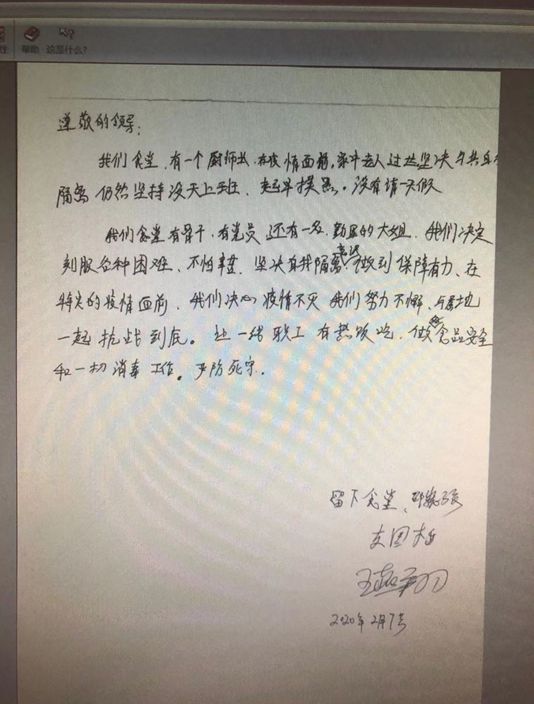 帮助 这是什么?
尊敬的领导:
我们食堂、有一个厨师长、在疫情面前,家中老人过世坚决与其自
隔离仍然坚持没天上班、起早摸黑。没有请一天假
我们食堂有骨干,有党员 还有一名勤恳的大姐,我们决定
刻服各种困难、不怕辛苦、坚决自我隔离、意识 做到保障有力、在
特大的疫情面前,我们决心疫情不灭 我们努力不懈、与基地
一起抗战到底。让一线职工有热饭吃,做好食品安全
和一切消毒工作。严防死守.
留下食堂、
2020年2月7号